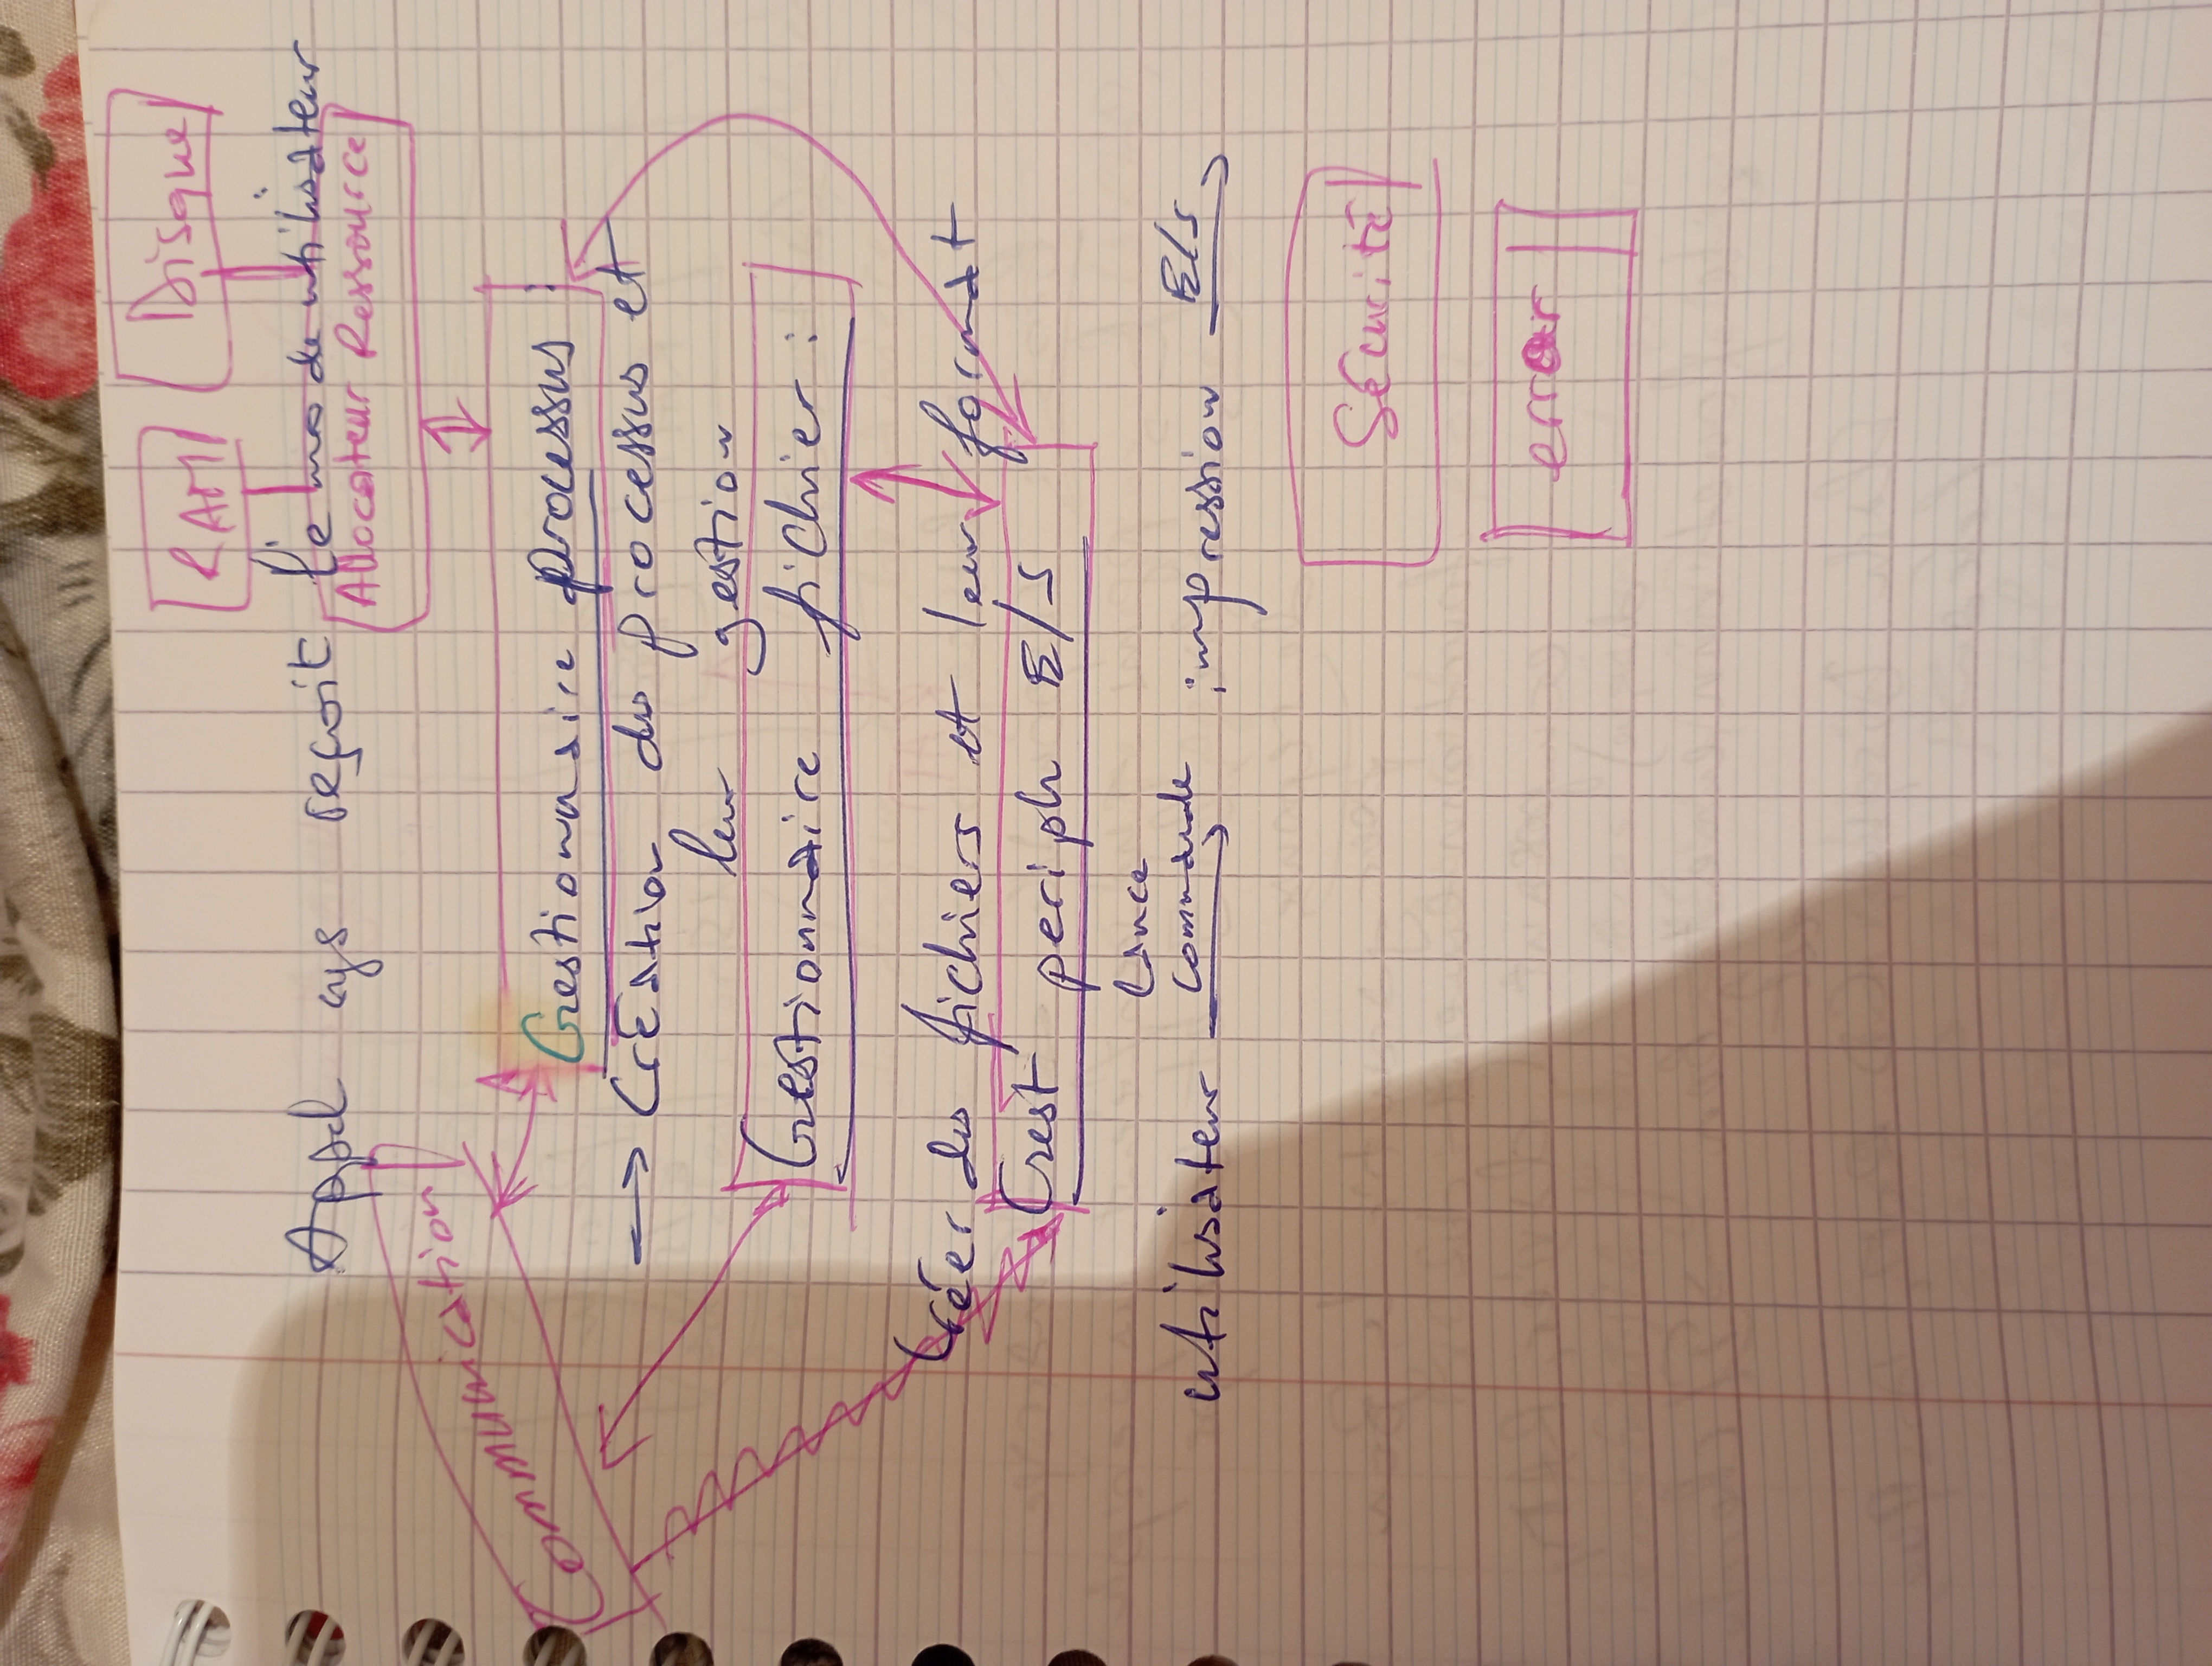 RAM
Disque
Appel sys reçoit le mode utilisateur
Allocateur Ressource
Communication
Gestionnaire processus :
→ Création des processus et
leur gestion
Gestionnaire fichier :
Créer des fichiers et leur format
Gest periph E/S
Lance
commande
utilisateur → impression E/S →
Sécurité
error